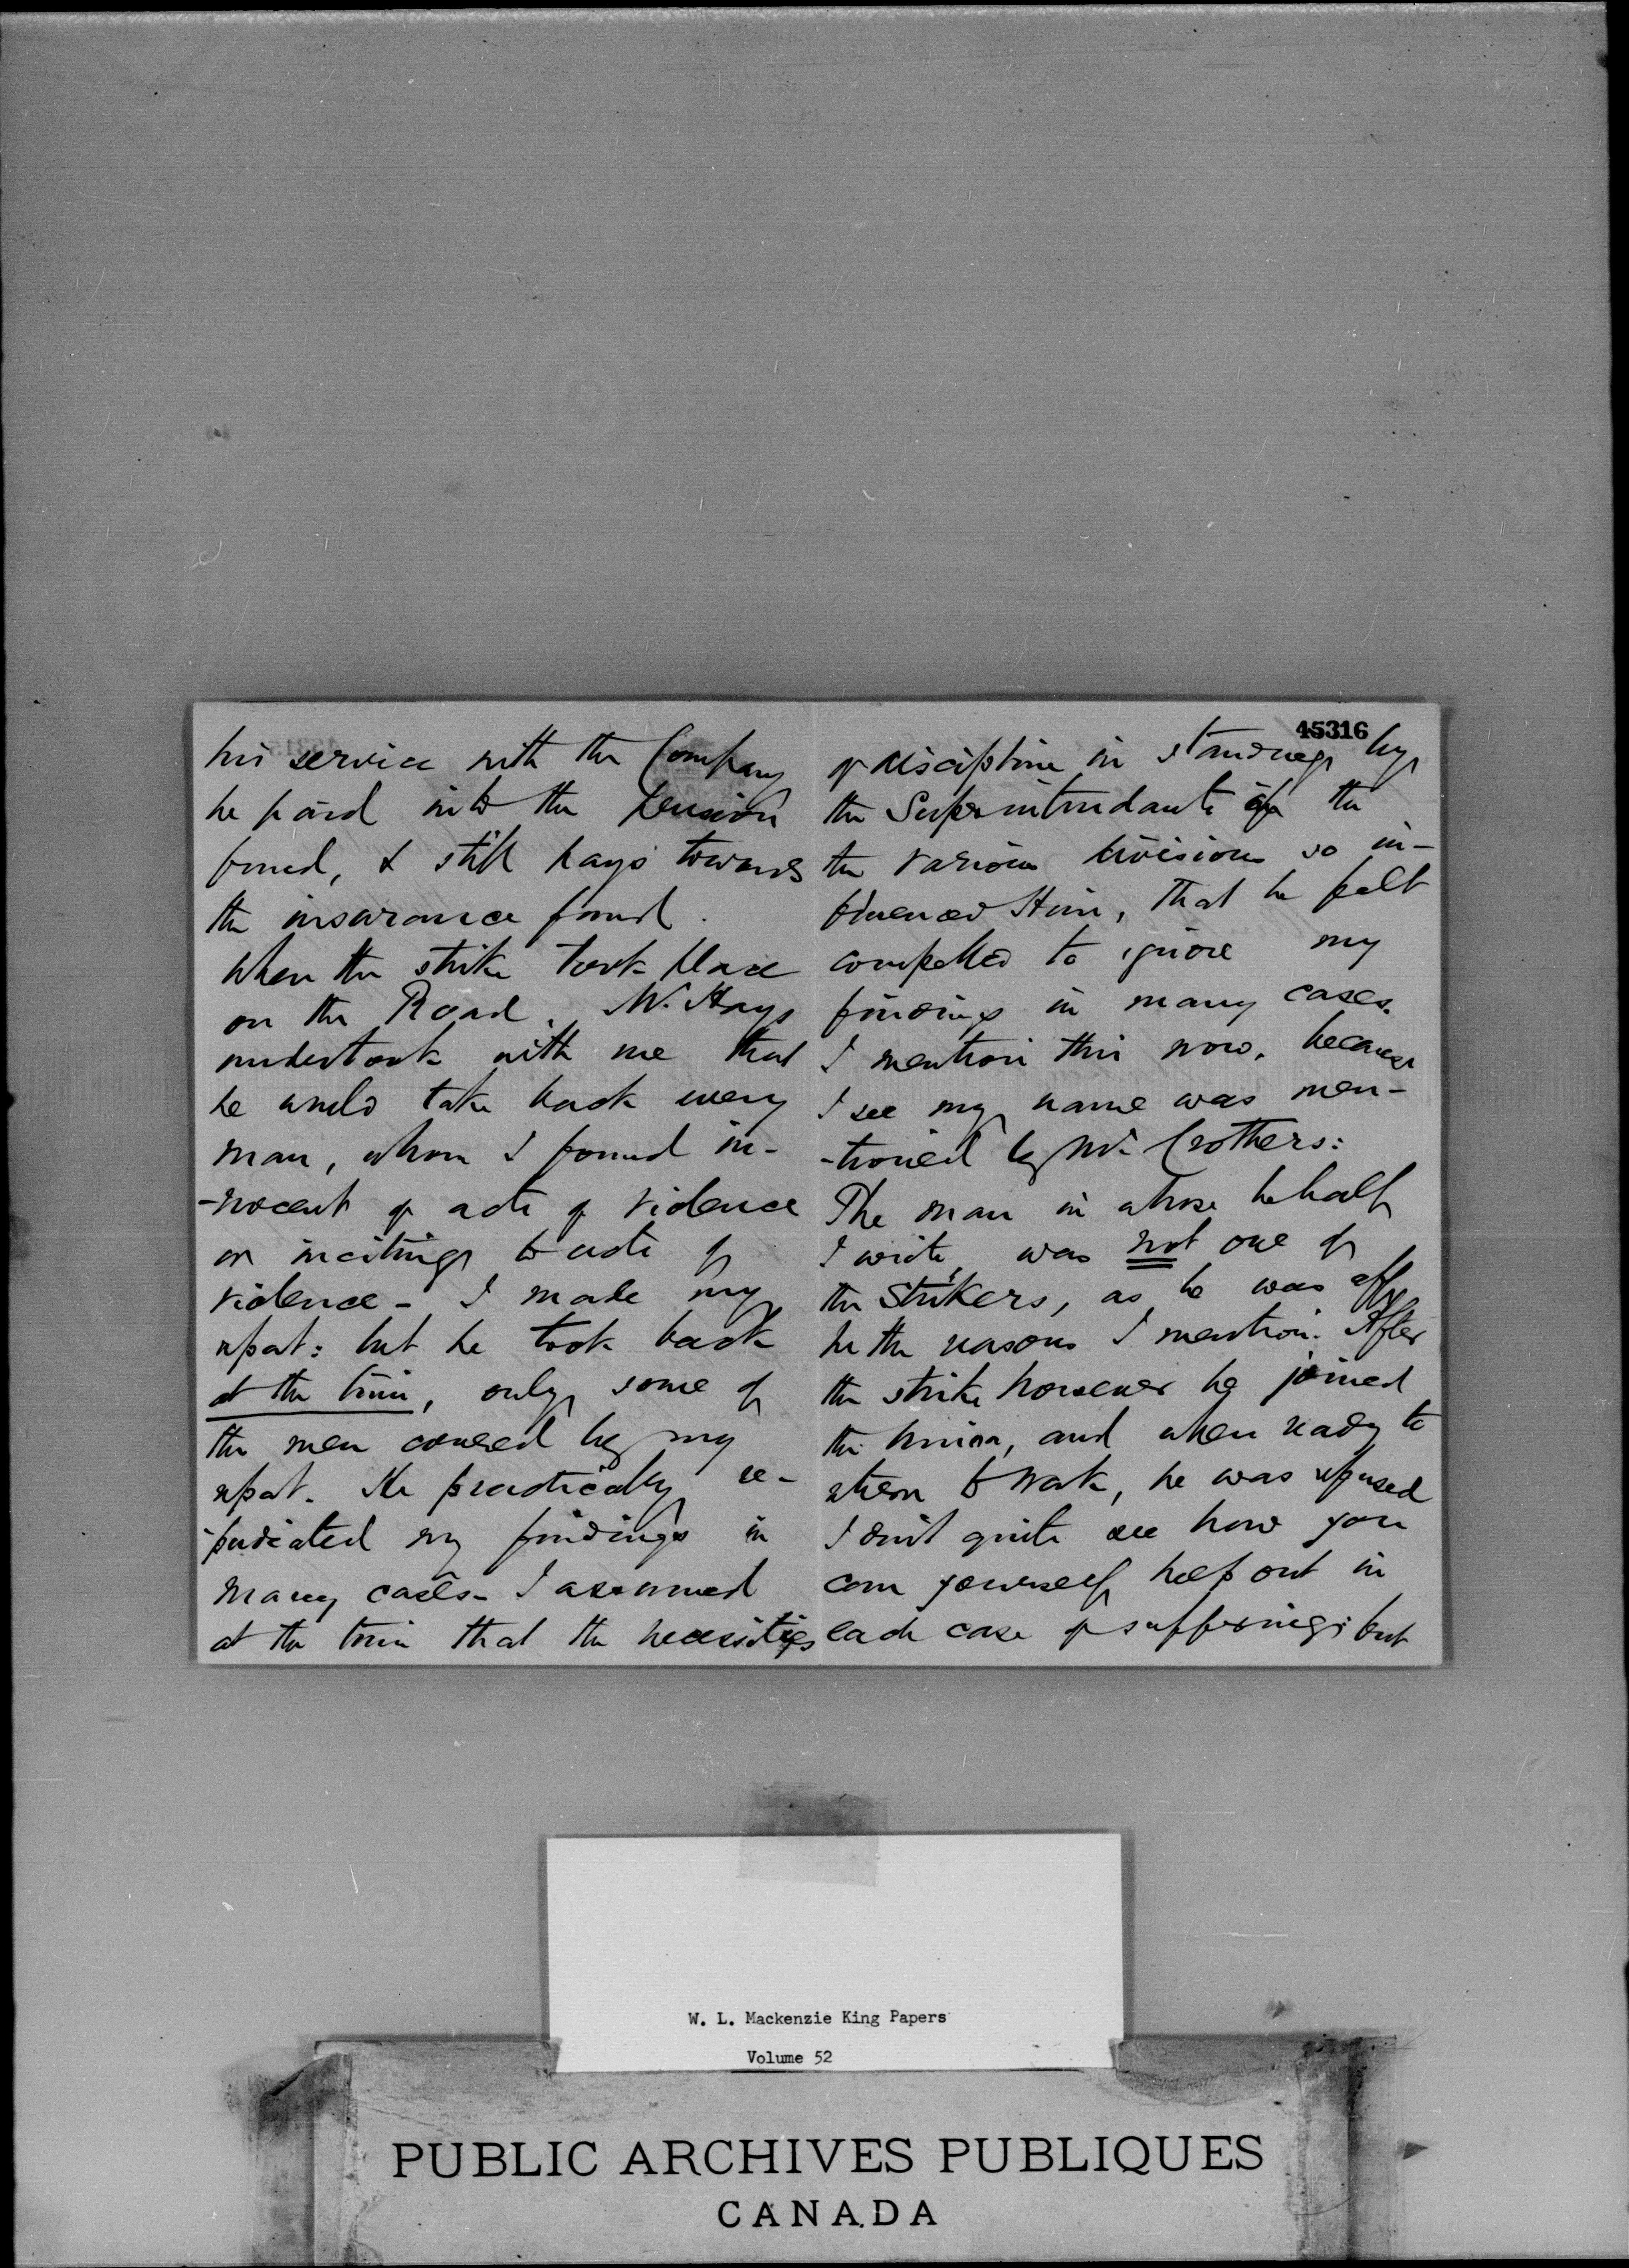 his service with the Company
he paid into the Pension
found, & still pays towards
the insurance fund.
When the strike took place
on the Road, Mr. Hays
undertook with me that
he would take back every
man, whom I found in-
-nocent of acts of violence
or inciting to acts of
violence - I made my
report: but he took back
at the time, only some of
the men covered by my
report. He practically re-
-pudiated my findings in
many cases - I assumed
at the time that the necessities
45316
of discipline in standing by
the Superintendants of the
the various divisions so in-
fluenced Him, that he felt
compelled to ignore my
findings in many cases.
I mention this now, because
I see my name was men-
-tioned by Mr. Crothers:
The man in whose behalf
I write, was not one of
the strikers, as he was off
for the reasons I mention. After
the strike however he joined
the Union, and when ready to
return to work, he was refused
I don't quite see how you
can yourself help out in
each case of suffering; but
W. L. Mackenzie King Papers
Volume 52
PUBLIC ARCHIVES PUBLIQUES
CANADA